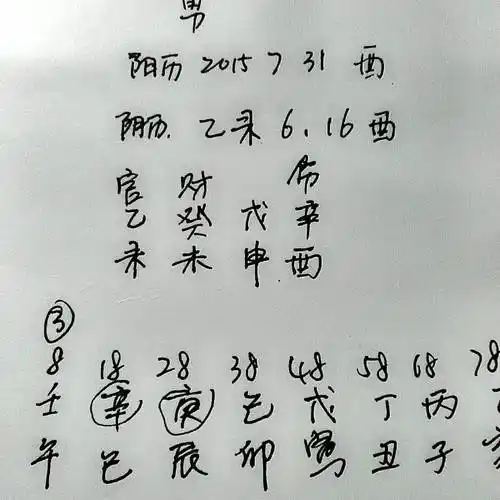 男
阳历 2015 7 31 酉
阴历. 乙未 6.16 酉
官 财 伤
乙 癸 戊 辛
未 未 申 酉
③
8 18 28 38 48 58 68 78
壬 辛 庚 己 戊 丁 丙
午 巳 辰 卯 寅 丑 子